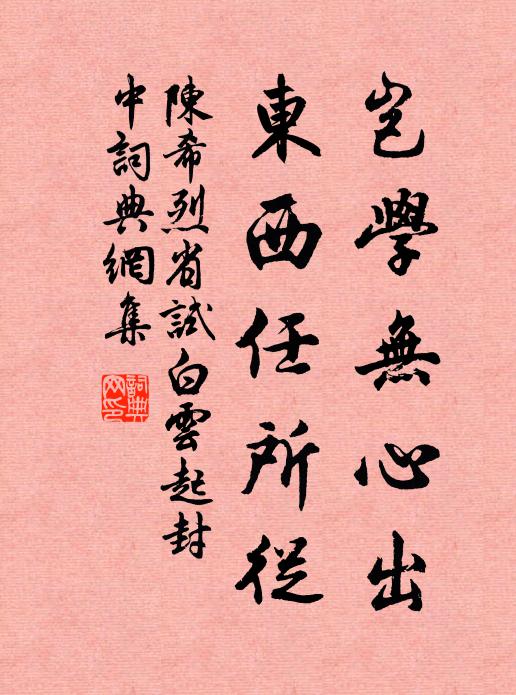 豈學無心出
東西任所從
陳希烈省試白雲起封
中詞典網集
詞典
网印